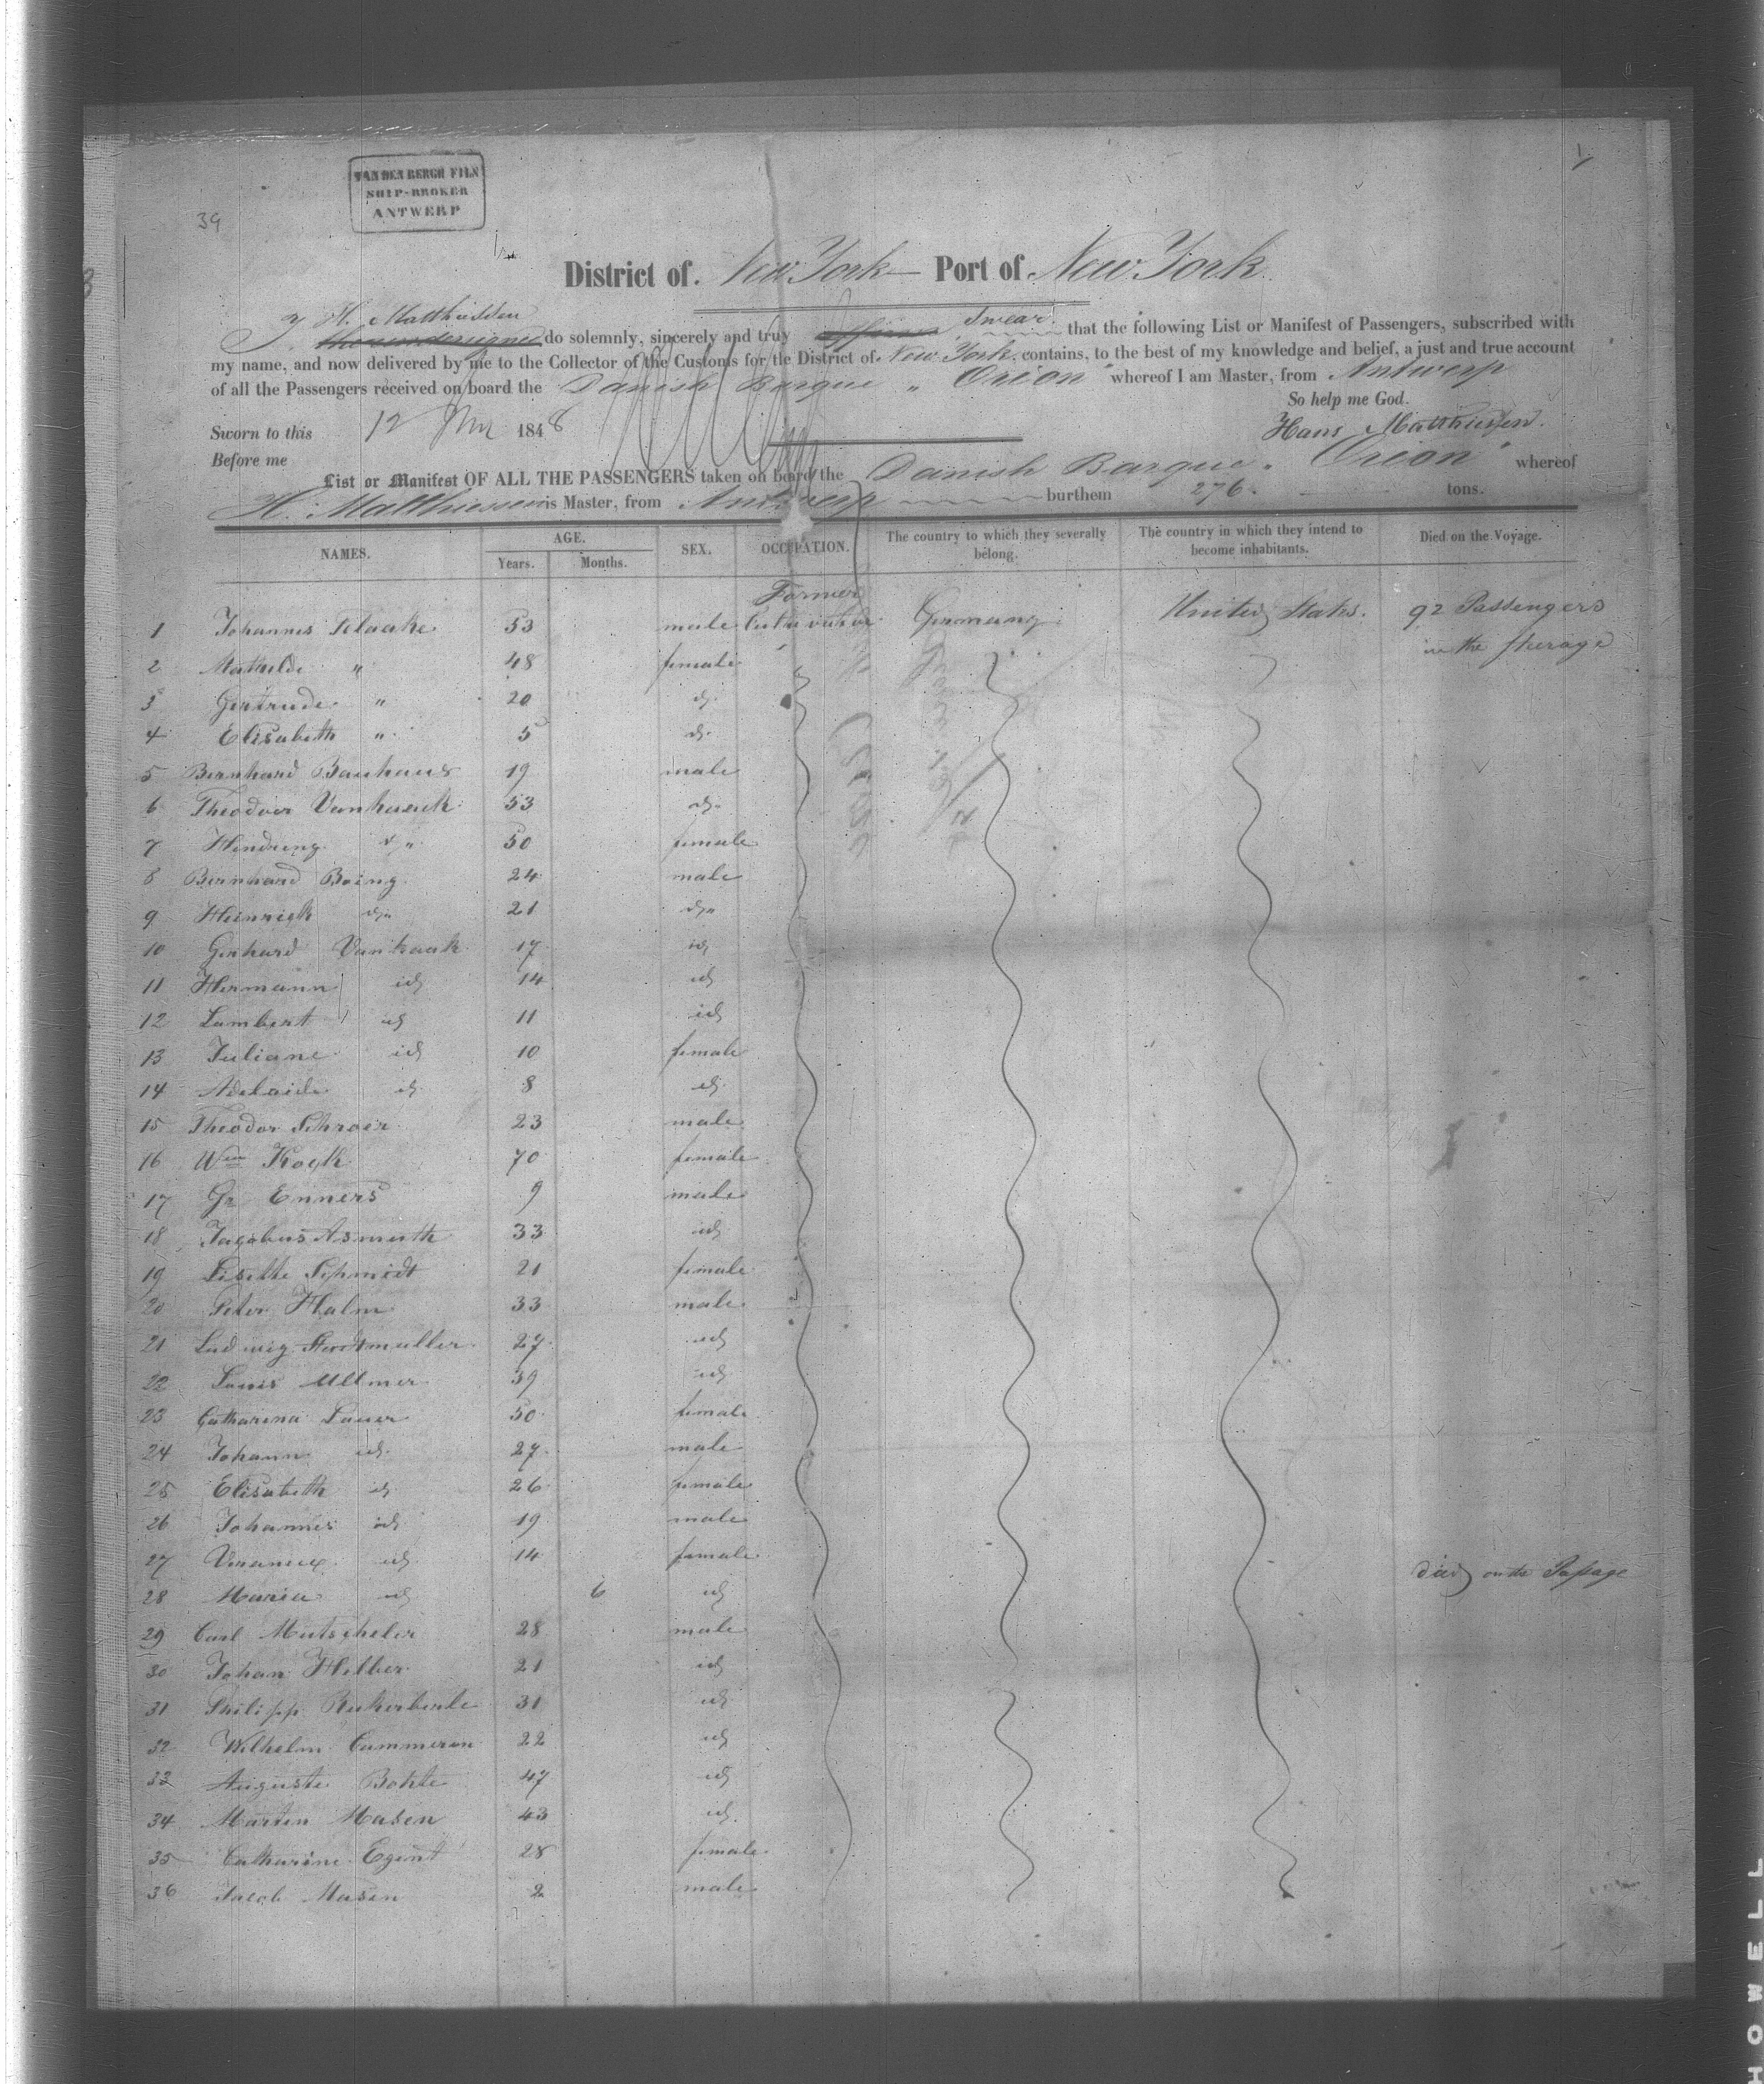 VAN DEN BERGH FILS
SHIP-BROKER
ANTWERP
39
District of New York Port of New York
I H. Matthiessen Swear
the undersigned do solemnly, sincerely and truly affirm that the following List or Manifest of Passengers, subscribed with
my name, and now delivered by me to the Collector of the Customs for the District of New York contains, to the best of my knowledge and belief, a just and true account
of all the Passengers received on board the Danish Barque "Orion" whereof I am Master, from Antwerp
So help me God.
Sworn to this 12 1848 Hans Matthiessen.
Before me
List or Manifest OF ALL THE PASSENGERS taken on board the Danish Barque "Orion" whereof
H. Matthiessen is Master, from Antwerp burthem 276 tons.
NAMES. AGE. SEX. OCCUPATION. The country to which they severally belong. The country in which they intend to become inhabitants. Died on the Voyage.
Years. Months.
Farmer
1 Johannes 53 male Germany United States. 92 Passengers
in the steerage
2 Mathilde " 48 female
3 Gertrude " 20 do
4 Elisabeth " 5 do
5 Bernhard Bauhaus 19 male
6 Theodoor Vanhaack 53 do
7 do " 50 female
8 Bernhard Boing 24 male
9 Heinrich do " 21 do "
10 Gerhard Vanhaack 17 id
11 Hermann id 14 id
12 Lambert id 11 id
13 Juliane id 10 female
14 Adelaide id 8 id
15 Theodor Schroer 23 male
16 Wm 70 female
17 Gr Enners 9 male
18 Jacobus Asmuth 33 id
19 Lisette Schmidt 21 female
20 Peter Halm 33 male
21 Ludwig 27 id
22 Louis Ullmer 39 id
23 Catharina Lauer 50 female
24 Johann id 27 male
25 Elisabeth id 26 female
26 Johannes id 19 male
27 id 14 female
28 Maria id 6 id died on the Passage
29 Carl Mutscheler 28 male
30 Johan Helber 21 id
31 Philipp 31 id
32 Wilhelm Cammeron 22 id
33 Auguste Bohte 47 id
34 Martin Masen 43 id
35 Catharine Egent 28 female
36 Jacob Masen 2 male
HOWELL